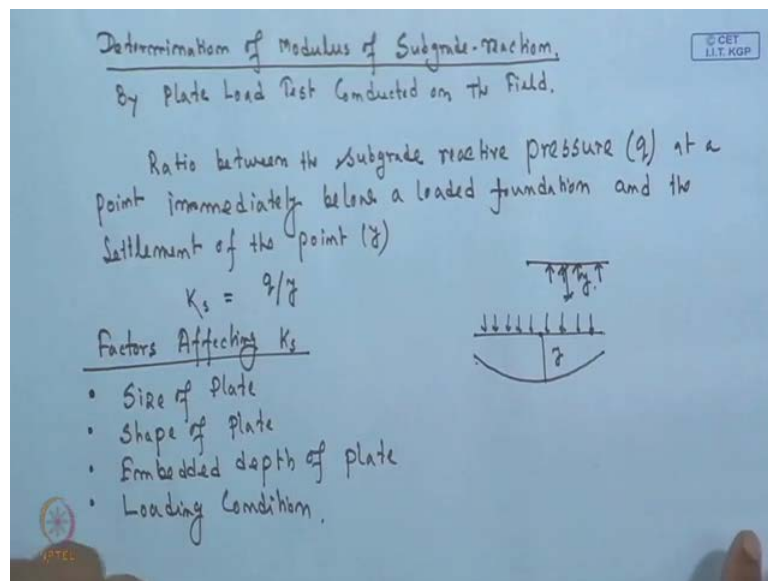 Determination of Modulus of Subgrade-reaction.
© CET
I.I.T. KGP
By Plate Load Test Conducted on The Field.
Ratio between the subgrade reactive pressure (q) at a
point immediately below a loaded foundation and the
settlement of the point (y)
Ks = q/y
Factors Affecting Ks
• Size of Plate
• Shape of Plate
• Embedded depth of plate
• Loading Condition.
y
NPTEL